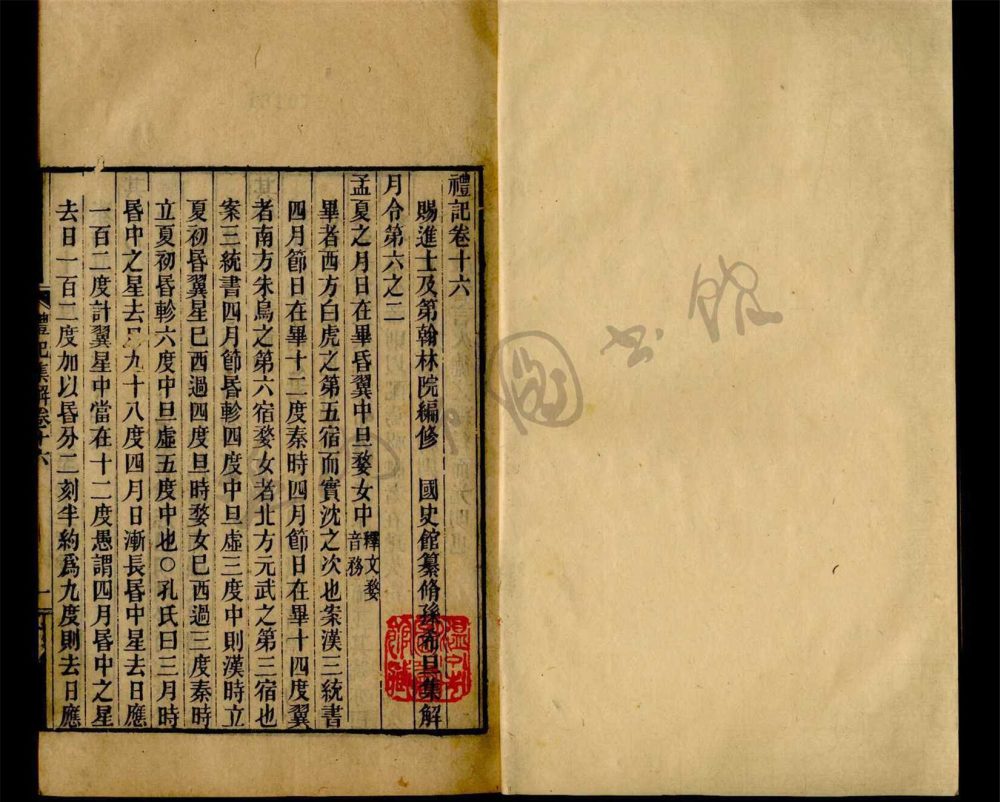 禮記卷十六
賜進士及第翰林院編修 國史館纂脩孫希旦集解
月令第六之二
孟夏之月日在畢昏翼中旦婺女中釋文婺音務
畢者西方白虎之第五宿而實沈之次也案漢三統書
四月節日在畢十二度秦時四月節日在畢十四度翼
者南方朱鳥之第六宿婺女者北方元武之第三宿也
案三統書四月節昏軫四度中旦虛三度中則漢時立
夏初昏翼星巳西過四度旦時婺女巳西過三度秦時
立夏初昏軫六度中旦虛五度中也○孔氏曰三月時
昏中之星去日九十八度四月日漸長昏中星去日應
一百二度計翼星中當在十二度愚謂四月昏中之星
去日一百二度加以昏分二刻半約爲九度則去日應
禮記集解卷十六
一
圖書館